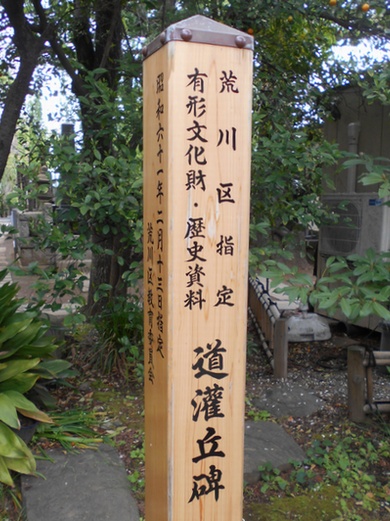 荒川区指定
有形文化財・歴史資料
道灌丘碑
昭和六十一年二月十三日指定
荒川区教育委員会